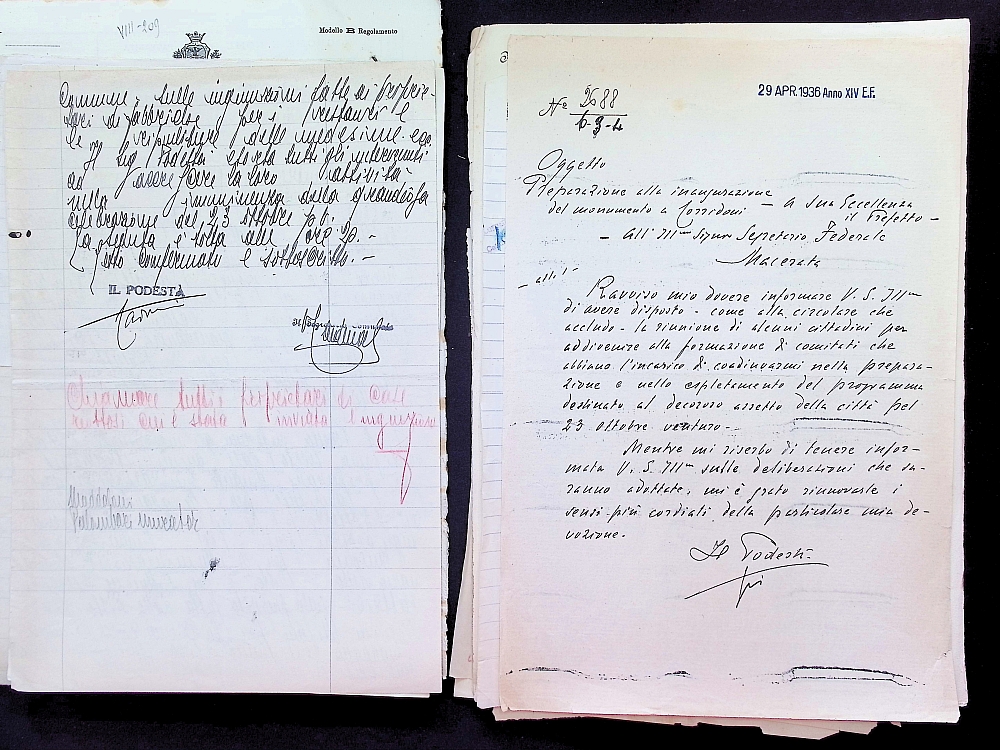 VIII-209
Modello B Regolamento
Comune, sulle ingiunzioni fatte ai proprie-
tari di fabbricati per i restauri e
le ripuliture delle medesime.
Il Sig. Podestà esorta tutti gli intervenuti
ad la loro attività
nella imminenza della grandiosa
celebrazione del 23 ottobre p.v.
La seduta è tolta alle ore 20.-
Letto confermato e sottoscritto.-
IL PODESTÀ
Chiamare tutti i proprietari di case
cui è stata inviata l'ingiunzione
Nº 2688
6-3-4
29 APR.1936 Anno XIV E.F.
Oggetto
Preparazione alla inaugurazione
del monumento a Corridoni
- A Sua Eccellenza
il Prefetto -
- All'Ill.mo Signor Segretario Federale
Macerata
- all. 1 -
Ravviso mio dovere informare V. S. Ill.ma
di avere disposto - come alla circolare che
accludo - la riunione di alcuni cittadini per
addivenire alla formazione di comitati che
abbiano l'incarico di coadiuvarmi nella prepara-
zione e nello espletamento del programma
destinato al decoroso assetto della città pel
23 ottobre venturo.-
Mentre mi riserbo di tenere infor-
mata V. S. Ill.ma sulle deliberazioni che sa-
ranno adottate, mi è grato rinnovarle i
sensi più cordiali della particolare mia de-
vozione.
Il Podestà